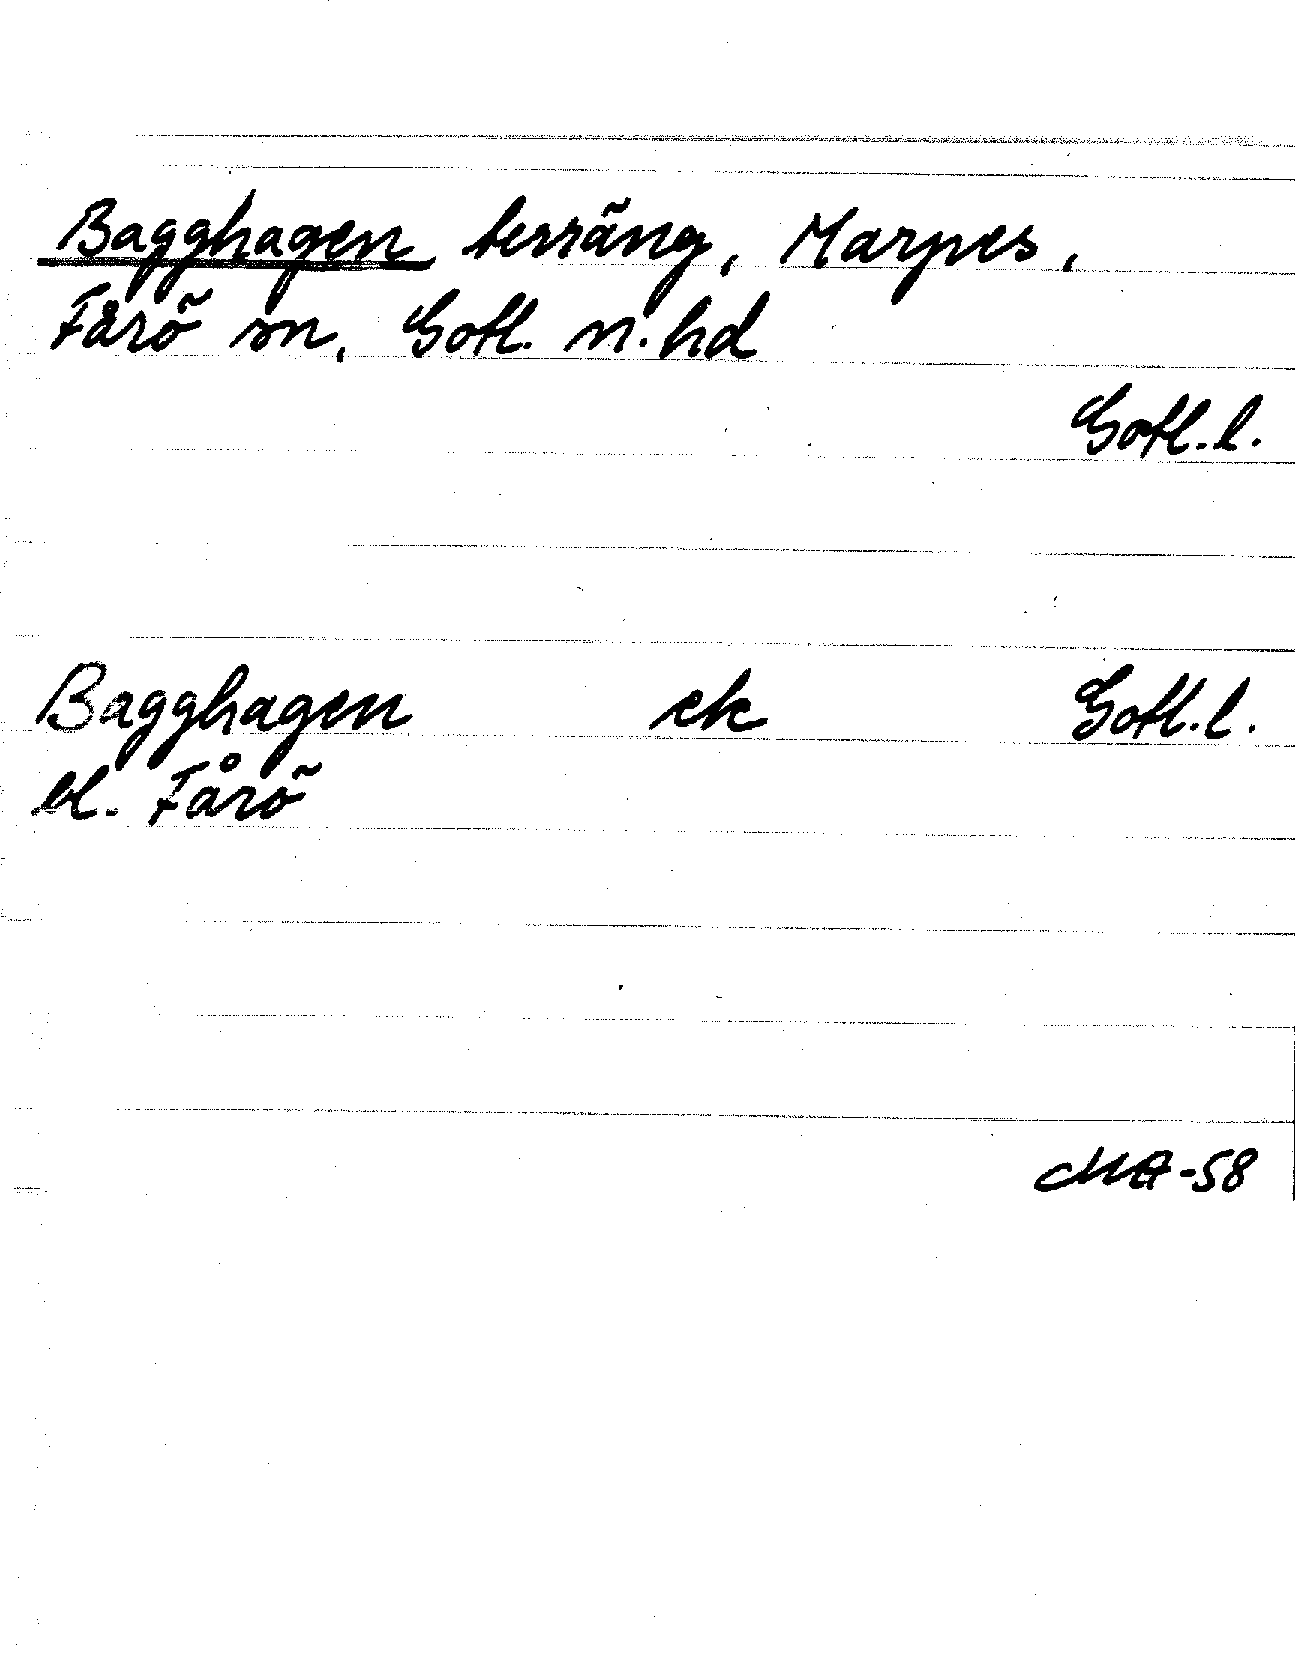 Bagghagen terräng, Marpes,
Fårö sn, Gotl. n. hd
Gotl. l.
Bagghagen ek Gotl. l.
bl. Fårö
MA-58